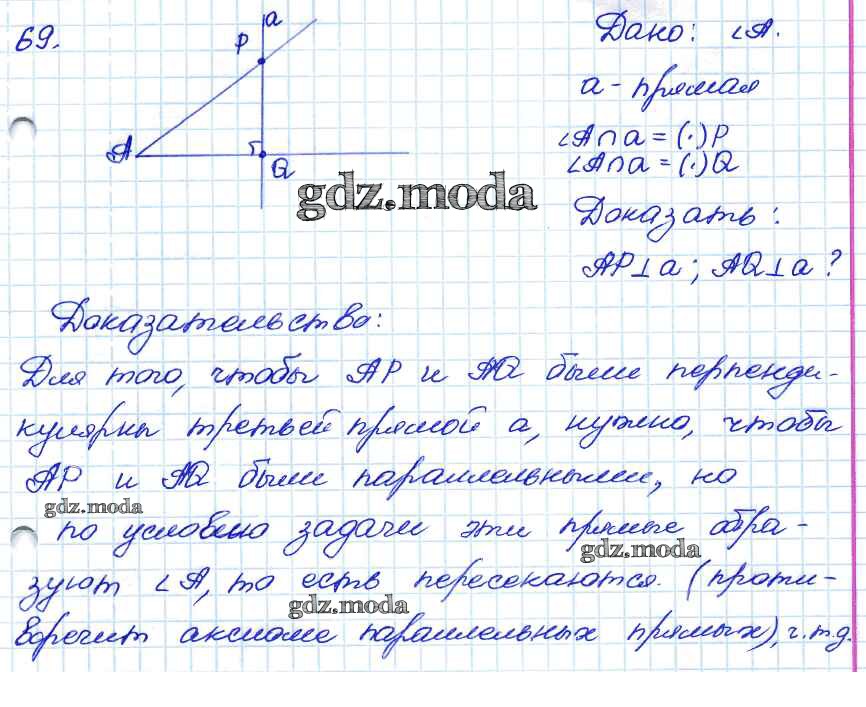 69.
a
P
A
Q
Дано: ∠A.
a - прямая
∠A∩a = (·)P
∠A∩a = (·)Q
gdz.moda
Доказать:
AP⊥a; AQ⊥a?
Доказательство:
Для того, чтобы AP и AQ были перпенди-
кулярны третьей прямой a, нужно, чтобы
AP и AQ были параллельными, но
gdz.moda
по условию задачи эти прямые обра-
gdz.moda
зуют ∠A, то есть пересекаются. (проти-
gdz.moda
воречит аксиоме параллельных прямых), ч.т.д.